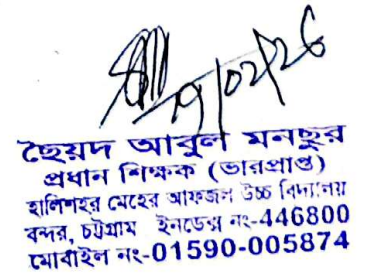 19/02/26
ছৈয়দ আবুল মনছুর
প্রধান শিক্ষক (ভারপ্রাপ্ত)
হালিশহর মেহের আফজল উচ্চ বিদ্যালয়
বন্দর, চট্টগ্রাম ইনডেক্স নং-446800
মোবাইল নং-01590-005874